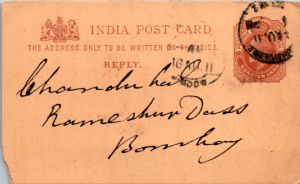 INDIA POST CARD
THE ADDRESS ONLY TO BE WRITTEN ON THIS SIDE.
REPLY.
Chandulal
Rameshur Dass
Bombay